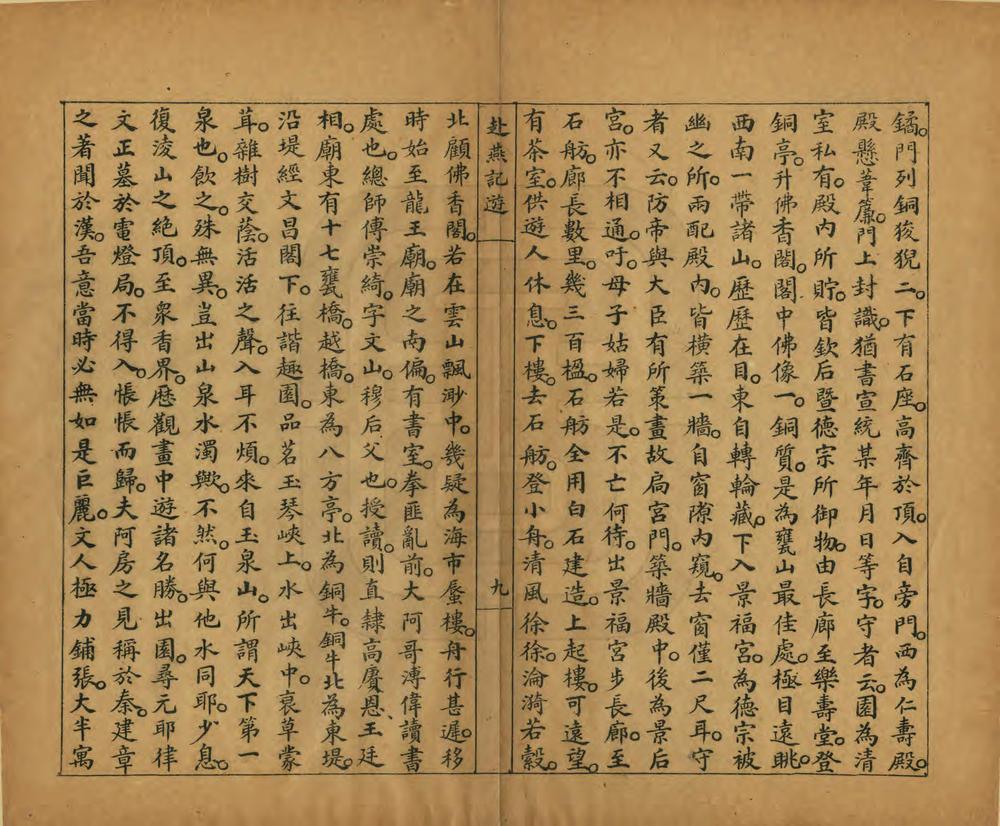 鐍。門列銅狻猊二。下有石座。高齊於頂。入自旁門。西為仁壽殿。
殿懸葦簾。門上封識。猶書宣統某年月日等字。守者云。園為清
室私有。殿內所貯。皆欽后暨德宗所御物。由長廊至樂壽堂。登
銅亭。升佛香閣。閣中佛像一。銅質。是為甕山最佳處。極目遠眺。
西南一帶諸山。歷歷在目。東自轉輪藏。下入景福宮。為德宗被
幽之所。兩配殿內。皆橫築一牆。自窗隙內窺。去窗僅二尺耳。守
者又云。防帝與大臣有所策畫。故局宮門。築牆殿中。後為景后
宮。亦不相通。吁。母子姑婦若是。不亡何待。出景福宮。步長廊。至
石舫。廊長數里。幾三百楹。石舫全用白石建造。上起樓。可遠望。
有茶室。供遊人休息。下樓。去石舫。登小舟。清風徐徐。淪漪若縠。
赴燕記遊
九
北顧佛香閣。若在雲山飄渺中。幾疑為海市蜃樓。舟行甚遲。移
時始至龍王廟。廟之南偏。有書室。拳匪亂前。大阿哥溥偉讀書
處也。總師傅崇綺。字文山。穆后父也。授讀。則直隸高賡恩、王廷
相。廟東有十七甕橋。越橋。東為八方亭。北為銅牛。銅牛北為東堤。
沿堤經文昌閣下。往諧趣園。品茗玉琴峽上。水出峽中。裒草蒙
茸。雜樹交蔭。活活之聲。入耳不煩。來自玉泉山。所謂天下第一
泉也。飲之。殊無異。豈出山泉水濁歟。不然。何與他水同耶。少息。
復淩山之絕頂。至眾香界。歷觀畫中遊諸名勝。出園。尋元耶律
文正墓於電燈局。不得入。悵悵而歸。夫阿房之見稱於秦。建章
之著聞於漢。吾意當時必無如是巨麗。文人極力鋪張。大半寓